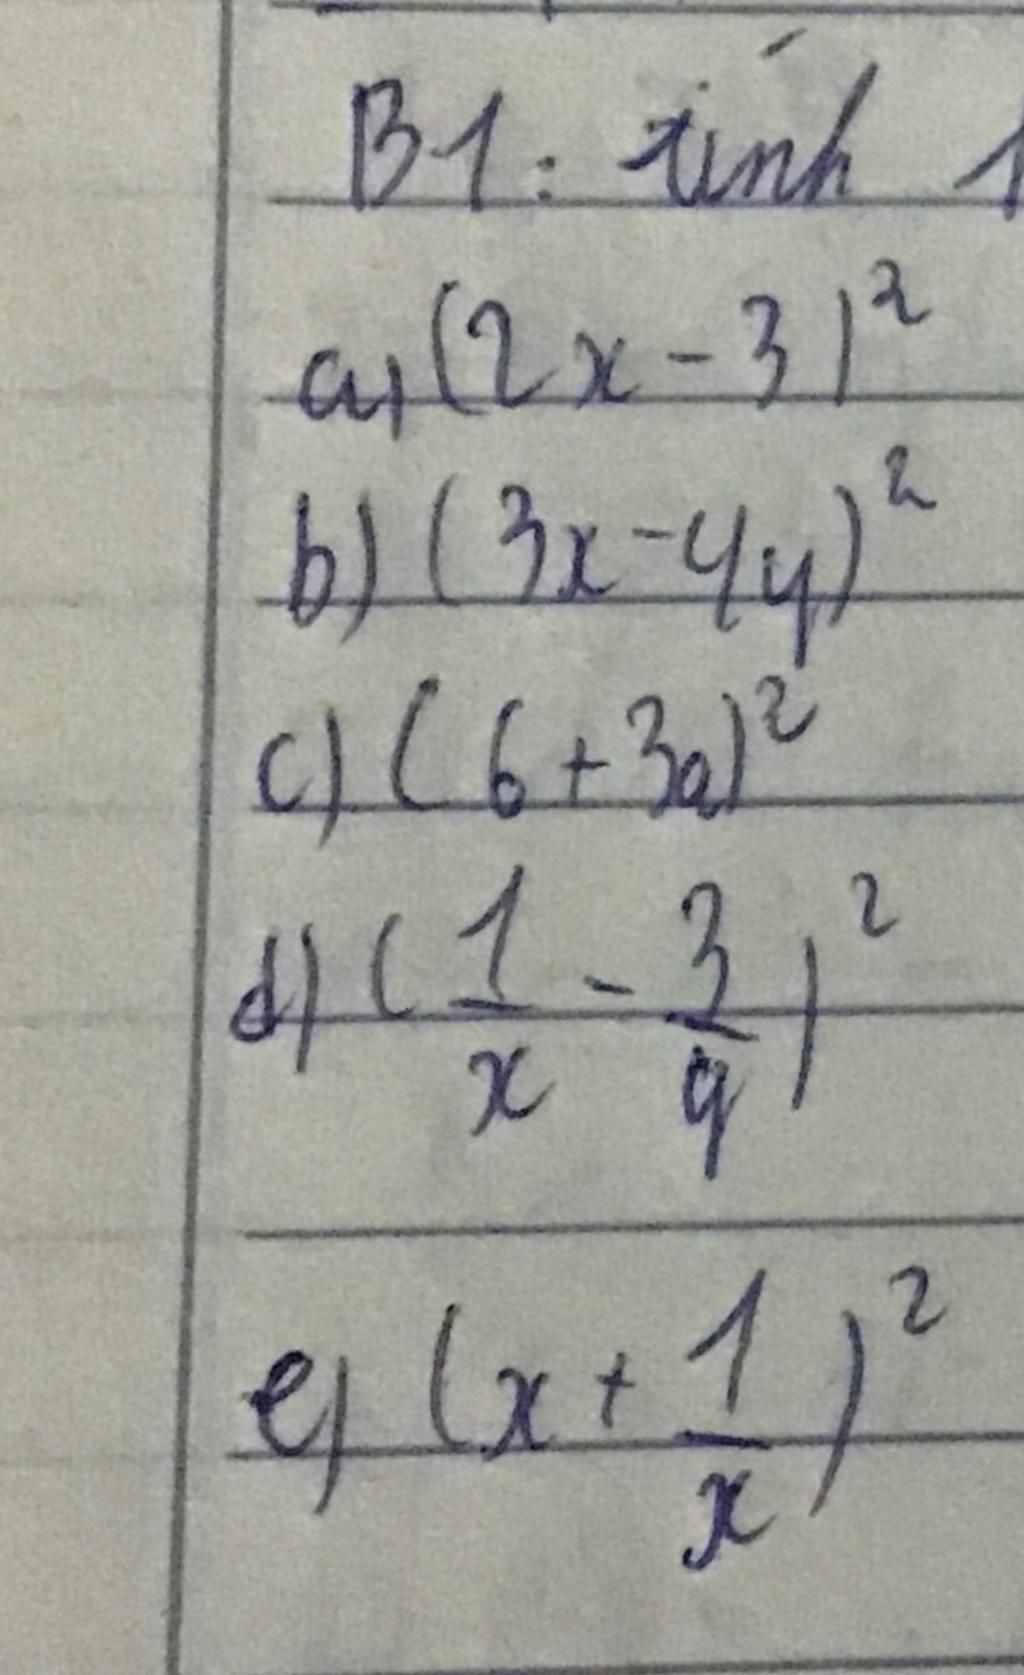 B1: tính
a) (2x - 3)²
b) (3x - 4y)²
c) (6 + 3a)²
d) (1/x - 3/y)²
e) (x + 1/x)²